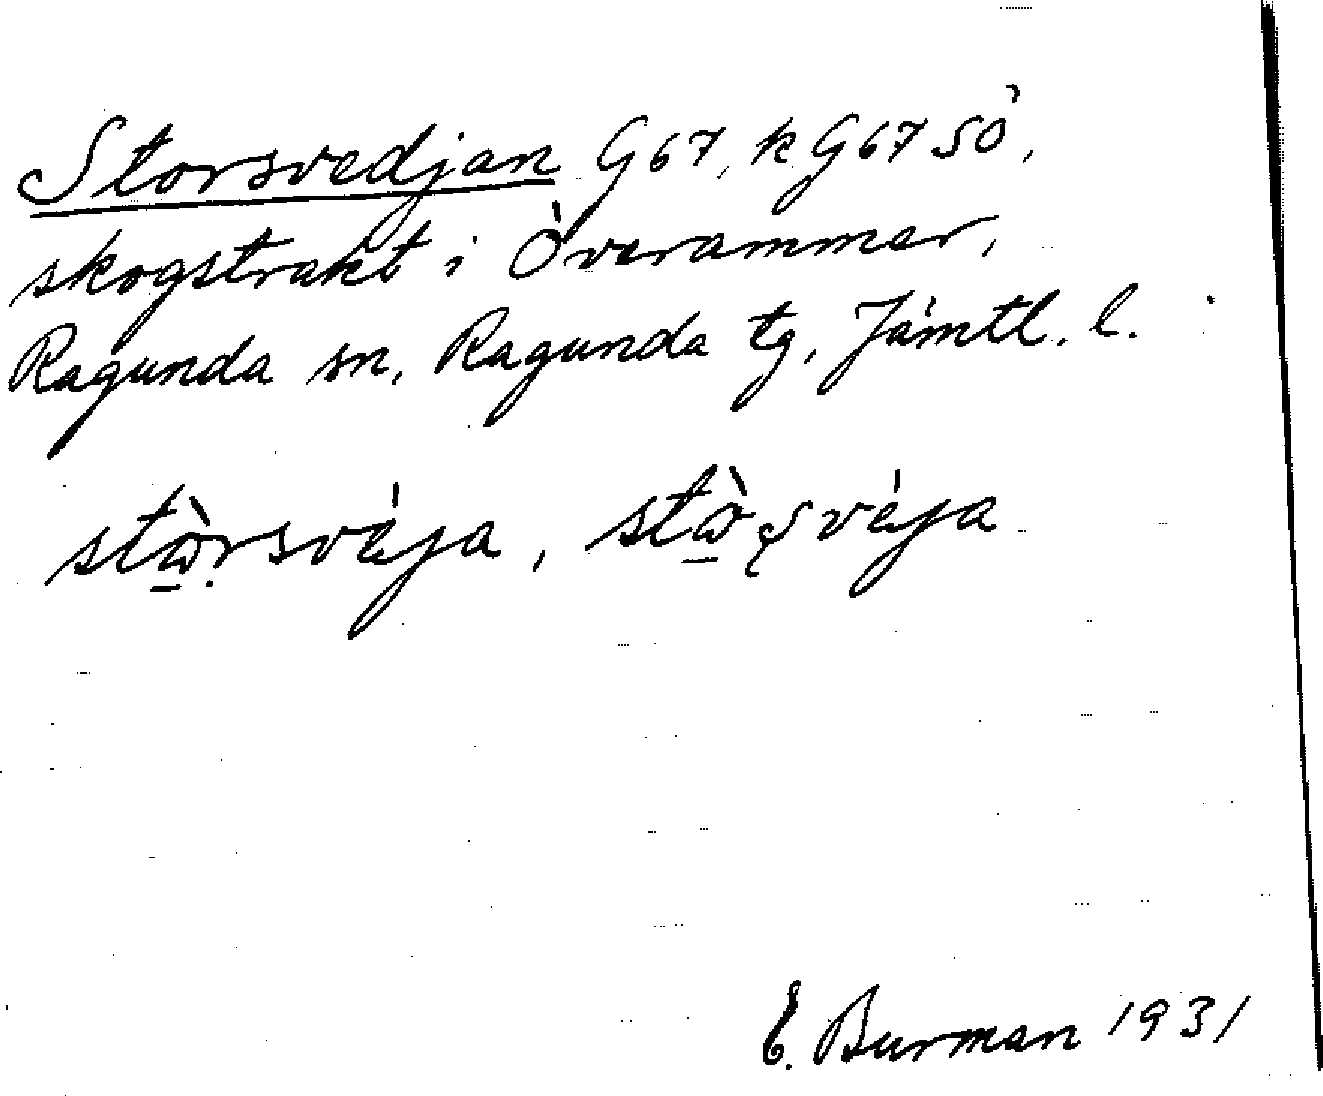 Storsvedjan G67, kG67SÖ,
skogstrakt i Överammer,
Ragunda sn, Ragunda tg, Jämtl. l.
stὼ̲ṛsvéja, stὼ̲ʂvéja
E. Burman 1931